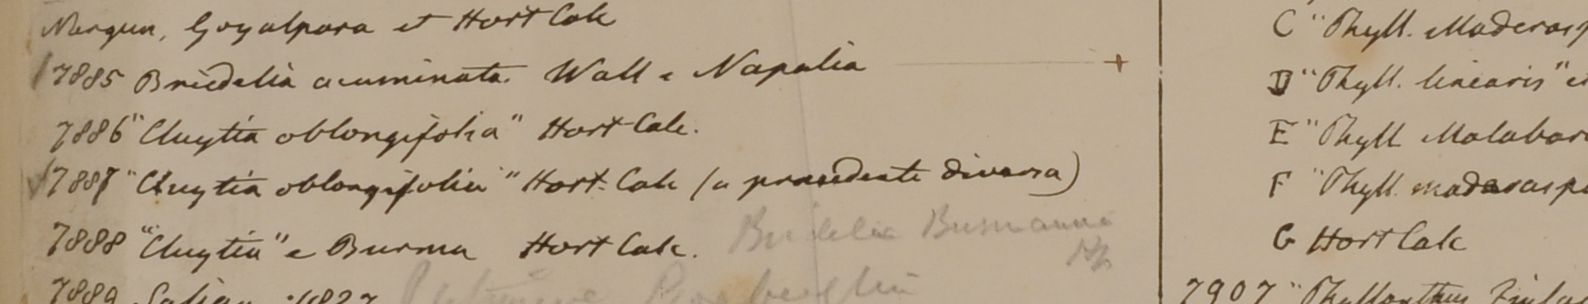 Mergui, Goyalpara et Hort Calc
7885 Briedelia acuminata. Wall e Napalia +
7886 "Cluytia oblongifolia" Hort Calc.
7887 "Cluytia oblongifolia" Hort. Calc (a praecedente diversa)
7888 "Cluytia" e Burma Hort Calc.
Bridelia Burmanica
7889 1827
C "Phyll. Maderasp
D "Phyll. linearis" e
E "Phyll Malabar
F "Phyll. maderaspa
G Hort Calc
7907 "Phyllanthus